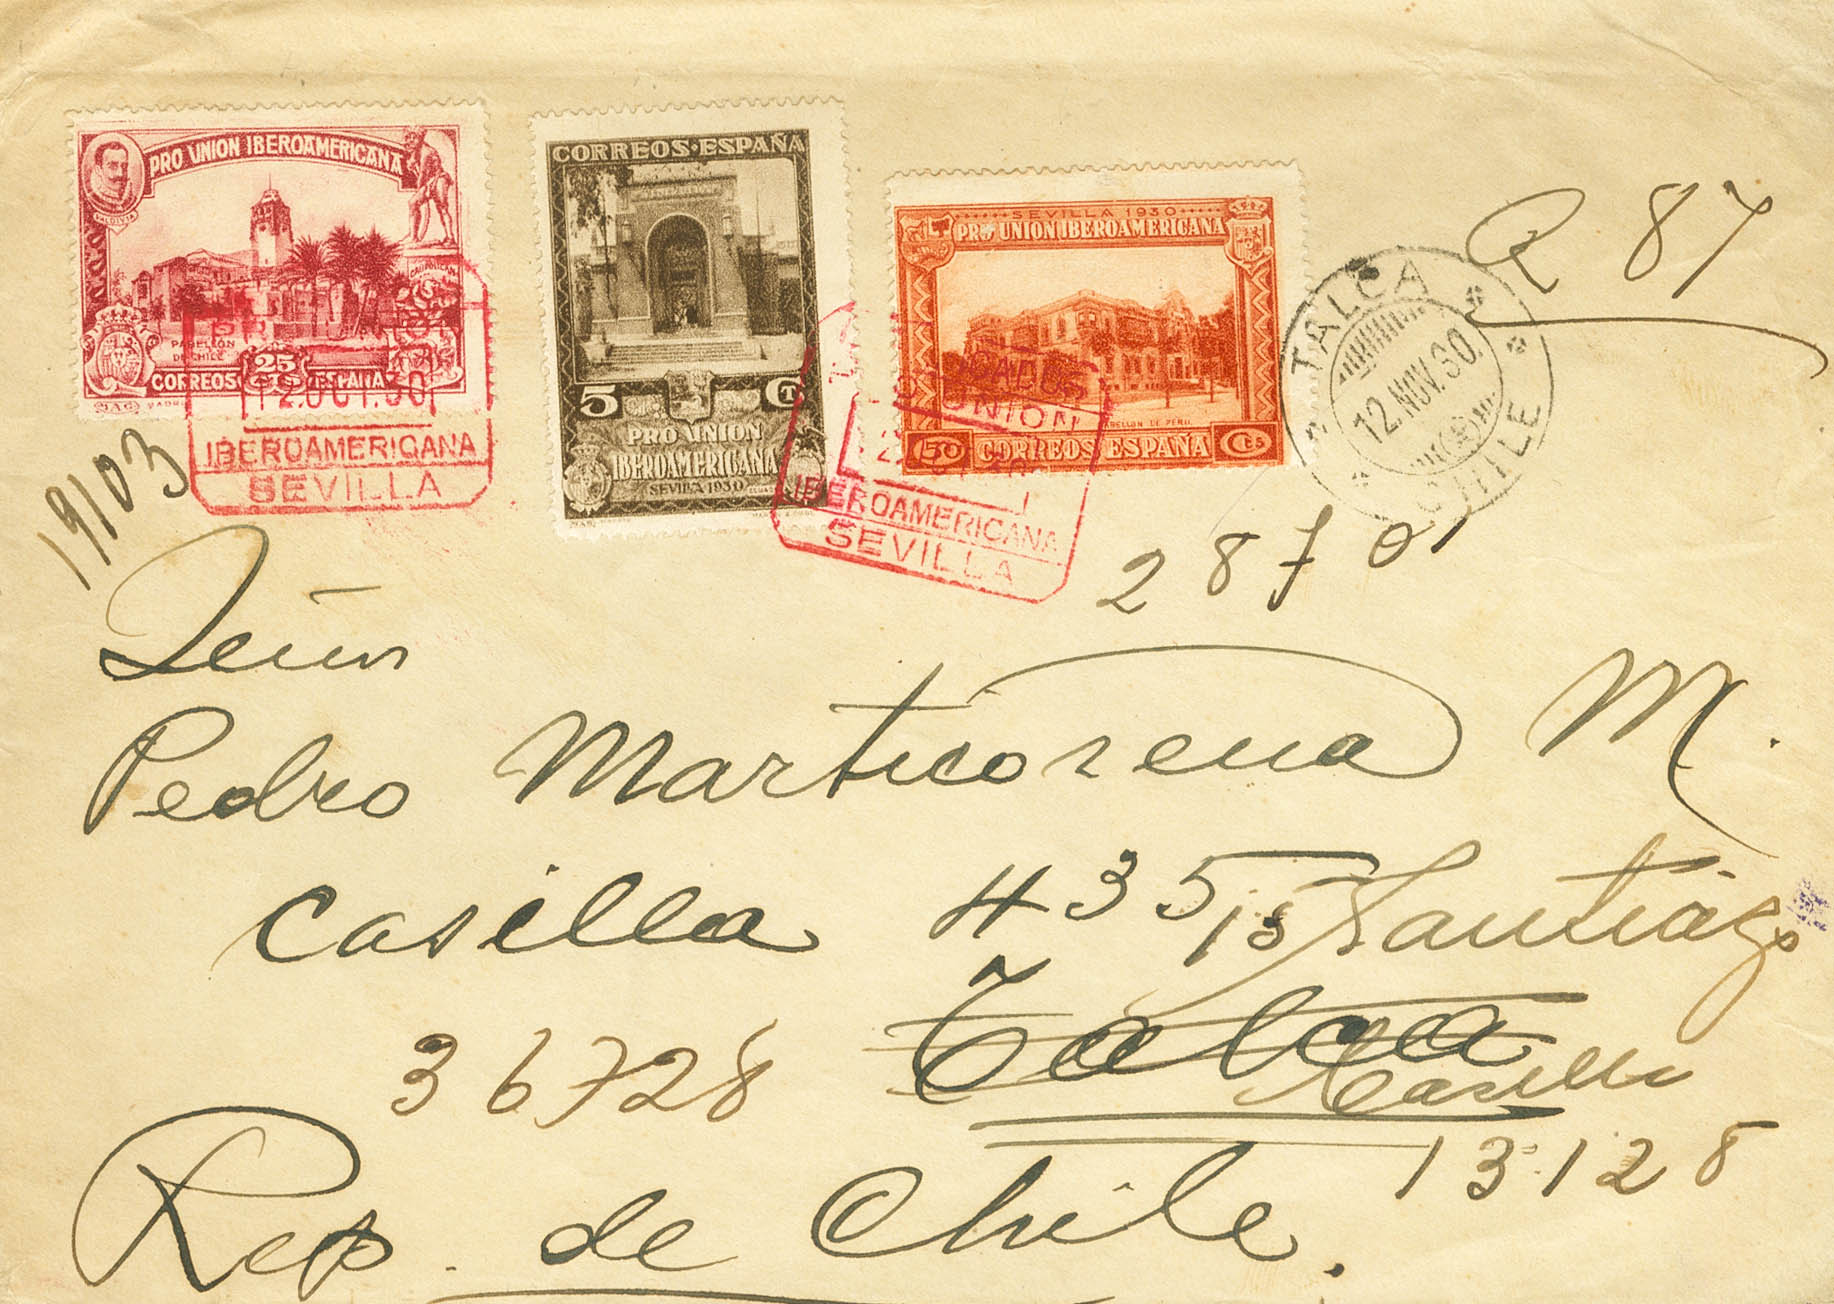 PRO UNION IBEROAMERICANA
VALDIVIA
CAUPOLICAN
PABELLON
DE CHILE
25
CORREOS ESPAÑA
12.OCT.30
IBEROAMERICANA
SEVILLA
CORREOS·ESPAÑA
5 CTS
PRO UNION
IBEROAMERICANA
SEVILLA 1930
SEVILLA 1930
PRO UNION IBEROAMERICANA
PABELLON DE PERU
50 CORREOS ESPAÑA CES
UNION
IBEROAMERICANA
SEVILLA
TALCA
12.NOV.30.
CHILE
R 87
19103
2870
Señor
Pedro Marticorena M.
Casilla 435 Santiago
Talca
36728 Casilla
13128
Rep. de Chile.